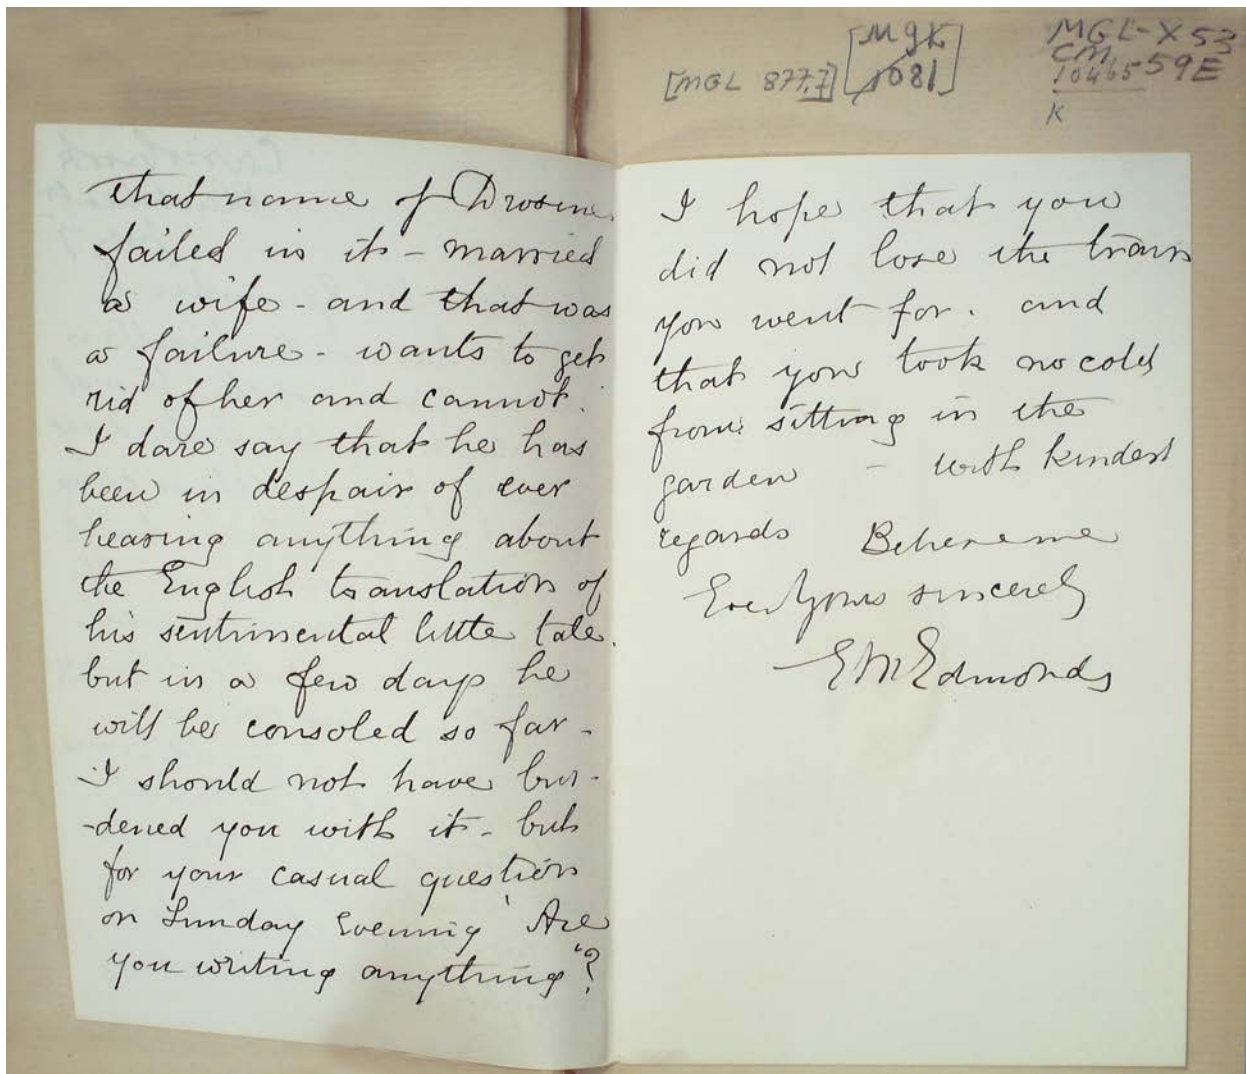 [MGL 877.7]
[MgK
1081]
MGL-X53
CM 59E
10465
K
that name of Drosine
failed in it - married
a wife - and that was
a failure - wants to get
rid of her and cannot.
I dare say that he has
been in despair of ever
hearing anything about
the English translation of
his sentimental little tale.
but in a few days he
will be consoled so far -
I should not have bur-
-dened you with it - but
for your casual question
on Sunday Evening "Are
you writing anything"?
I hope that you
did not lose the train
you went for. and
that you took no cold
from sitting in the
garden - with kindest
regards Believe me
Ever Yours sincerely
E M Edmonds